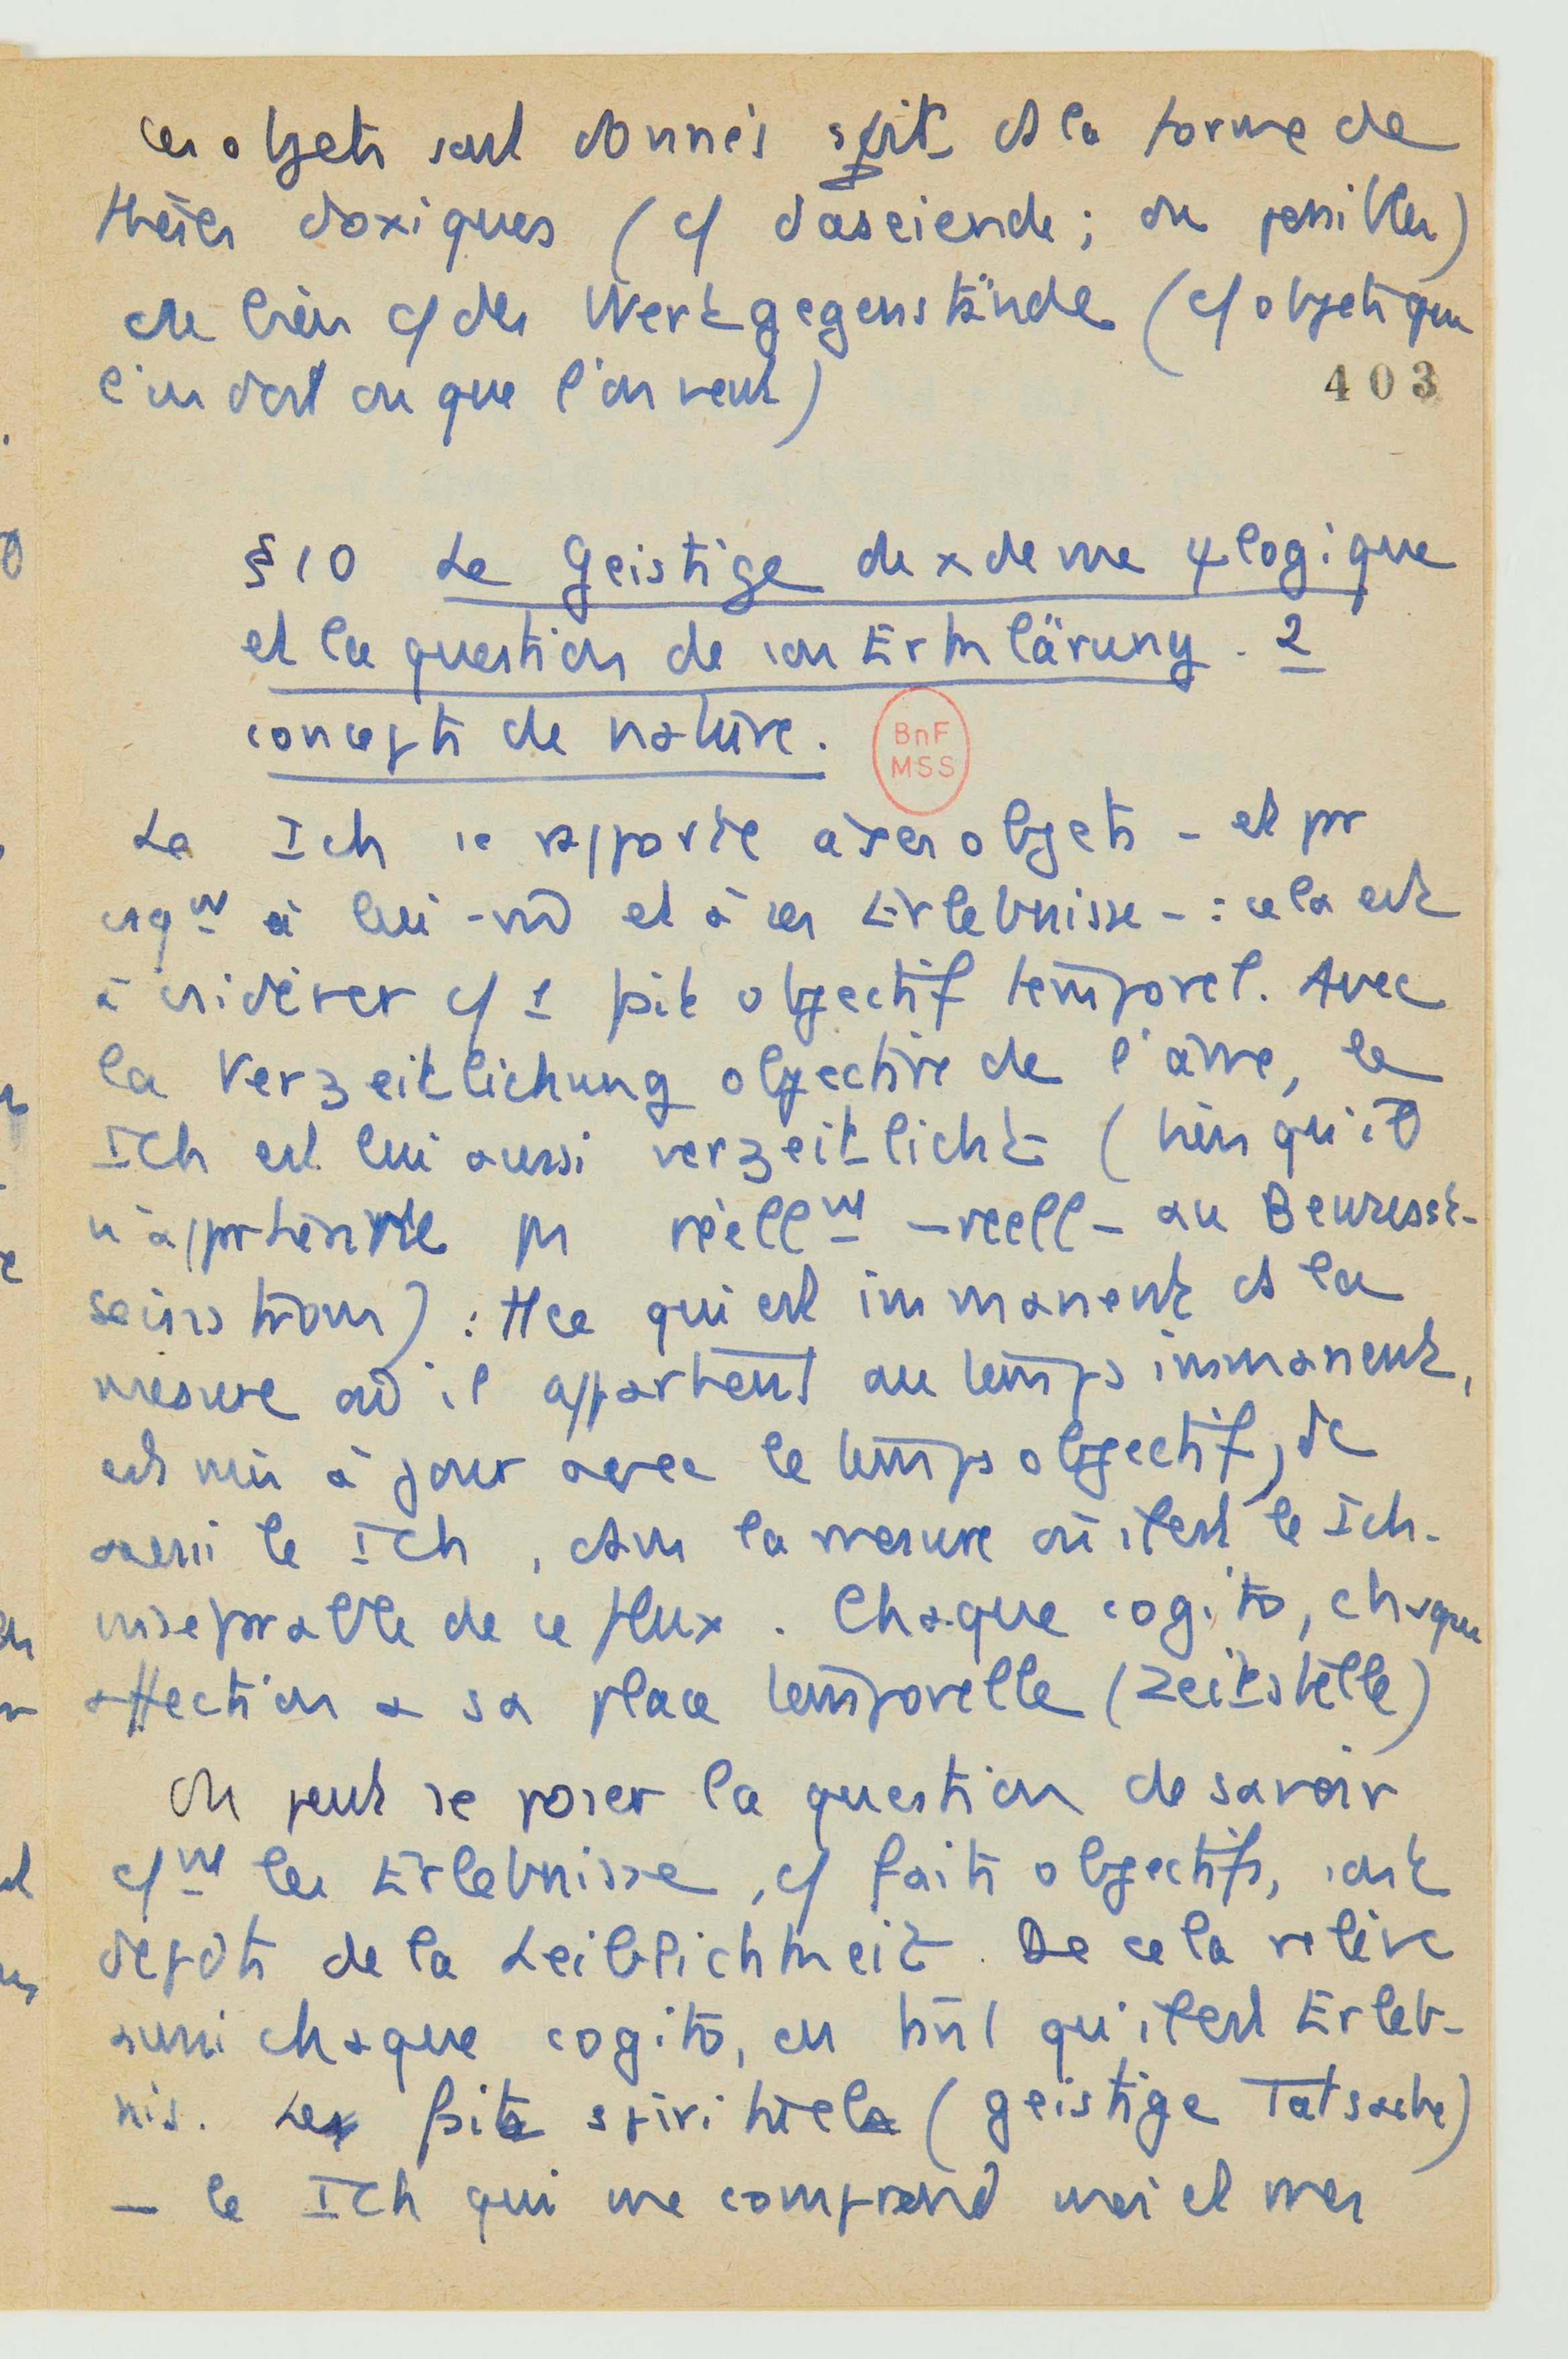 ces objets sont donnés soit ds la forme de
thèses doxiques (c/ daseiende ; ou possibles)
ou bien c/ des Wertgegenstände (c/ objets que
l'on doit ou que l'on veut)
403
§ 10 Le Geistige de ψlogique
et la question de son Erklärung. 2
concepts de nature.
BnF
MSS
Le Ich se rapporte à ses objets - et pr
csqnt à lui-m̄ et à ses Erlebnisse - : cela est
à csidérer c/ 1 fait objectif temporel. Avec
la Verzeitlichung objective de l'âme, le
Ich est lui aussi verzeitlicht (bien qu'il
n'appartienne pas réellnt - reell - au Bewusst-
seinsstrom) : tt ce qui est immanent ds la
mesure où il appartient au temps immanent,
est mis à jour avec le temps objectif, dc
aussi le Ich, dans la mesure où il est le Ich
inséparable de ce flux. Chaque cogito, chaque
affection a sa place temporelle (Zeitstelle)
On peut se poser la question de savoir
c/nt les Erlebnisse, c/ faits objectifs, sont
dépdts de la Leiblichkeit. De cela relève
aussi chaque cogito, en tant qu'il est Erleb-
nis. Le fait spirituel (geistige Tatsache)
- le Ich qui me comprend moi et mes